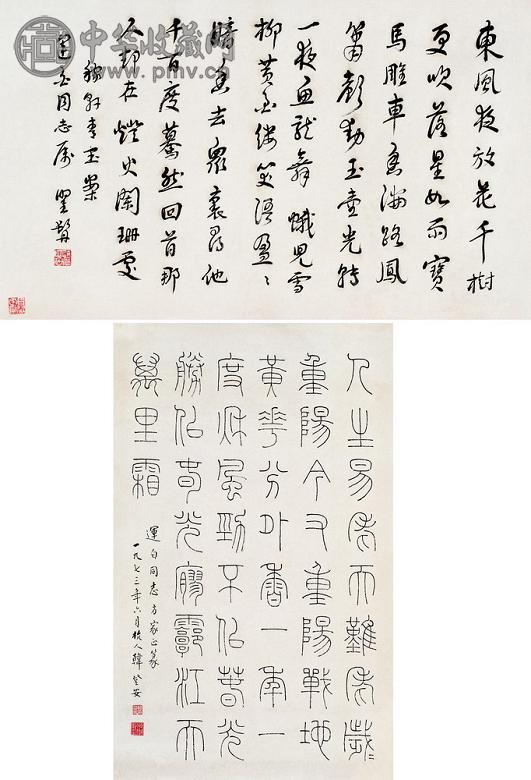 中华收藏网
www.pmv.cn
東風夜放花千樹
更吹落星如雨寶
馬雕車香滿路鳳
簫聲動玉壺光轉
一夜魚龍舞蛾兒雪
柳黃金縷笑語盈〻
暗香去眾裏尋他
千百度驀然回首那
人卻在燈火闌珊處
稼軒青玉案
運白同志屬
人生易老天難老歲〻
重陽今又重陽戰地
黃花分外香一年一
度秋風勁不似春光
勝似春光寥廓江天
萬里霜
運白同志方家正篆
一九七三年六月 韓登安